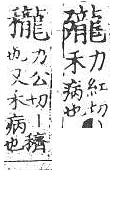 力紅切
禾病也
䆍
力公切丨穧
也又禾病也